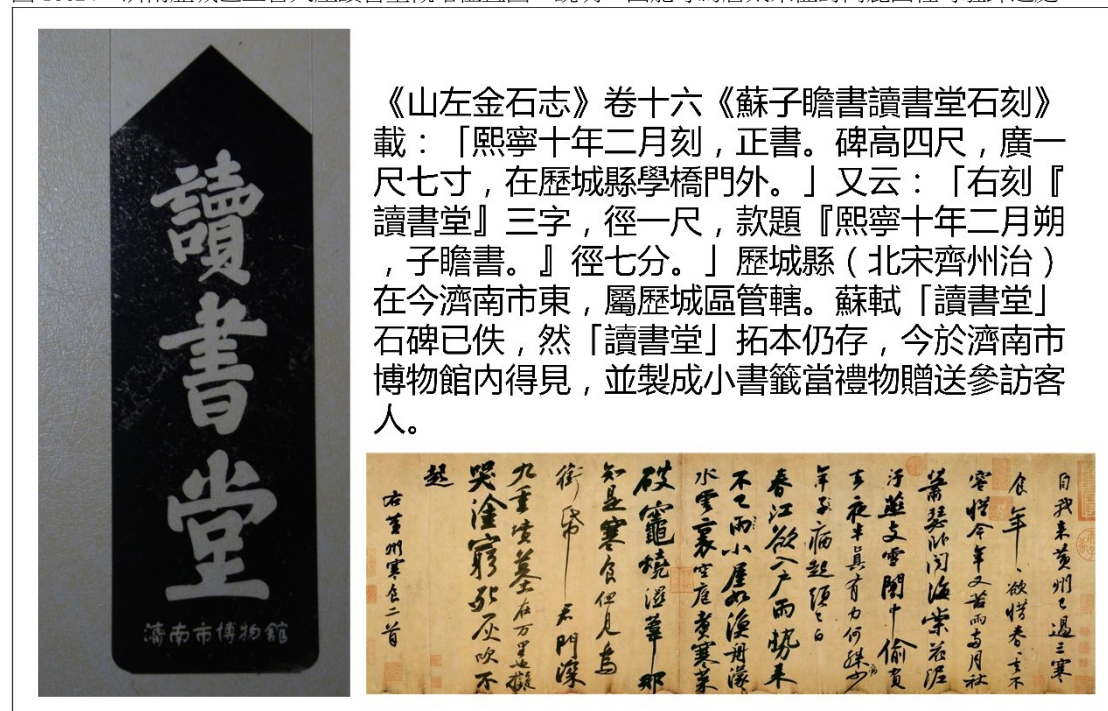 讀書堂
濟南市博物館
《山左金石志》卷十六《蘇子瞻書讀書堂石刻》
載：「熙寧十年二月刻，正書。碑高四尺，廣一
尺七寸，在歷城縣學橋門外。」又云：「右刻『
讀書堂』三字，徑一尺，款題『熙寧十年二月朔
，子瞻書。』徑七分。」歷城縣（北宋齊州治）
在今濟南市東，屬歷城區管轄。蘇軾「讀書堂」
石碑已佚，然「讀書堂」拓本仍存，今於濟南市
博物館內得見，並製成小書籤當禮物贈送參訪客
人。
自我來黃州已過三寒
食年〻欲惜春〻去不
容惜今年又苦雨兩月秋
蕭瑟臥聞海棠花泥
汙燕支雪闇中偷負
去夜半真有力何殊少
年子病起頭已白
春江欲入戶雨勢來
不已雨小屋如漁舟濛〻
水雲裏空庖煮寒菜
破竈燒濕葦那
知是寒食但見烏
銜帋君門深
九重墳墓在万里也擬
哭塗窮死灰吹不
起
右黃州寒食二首